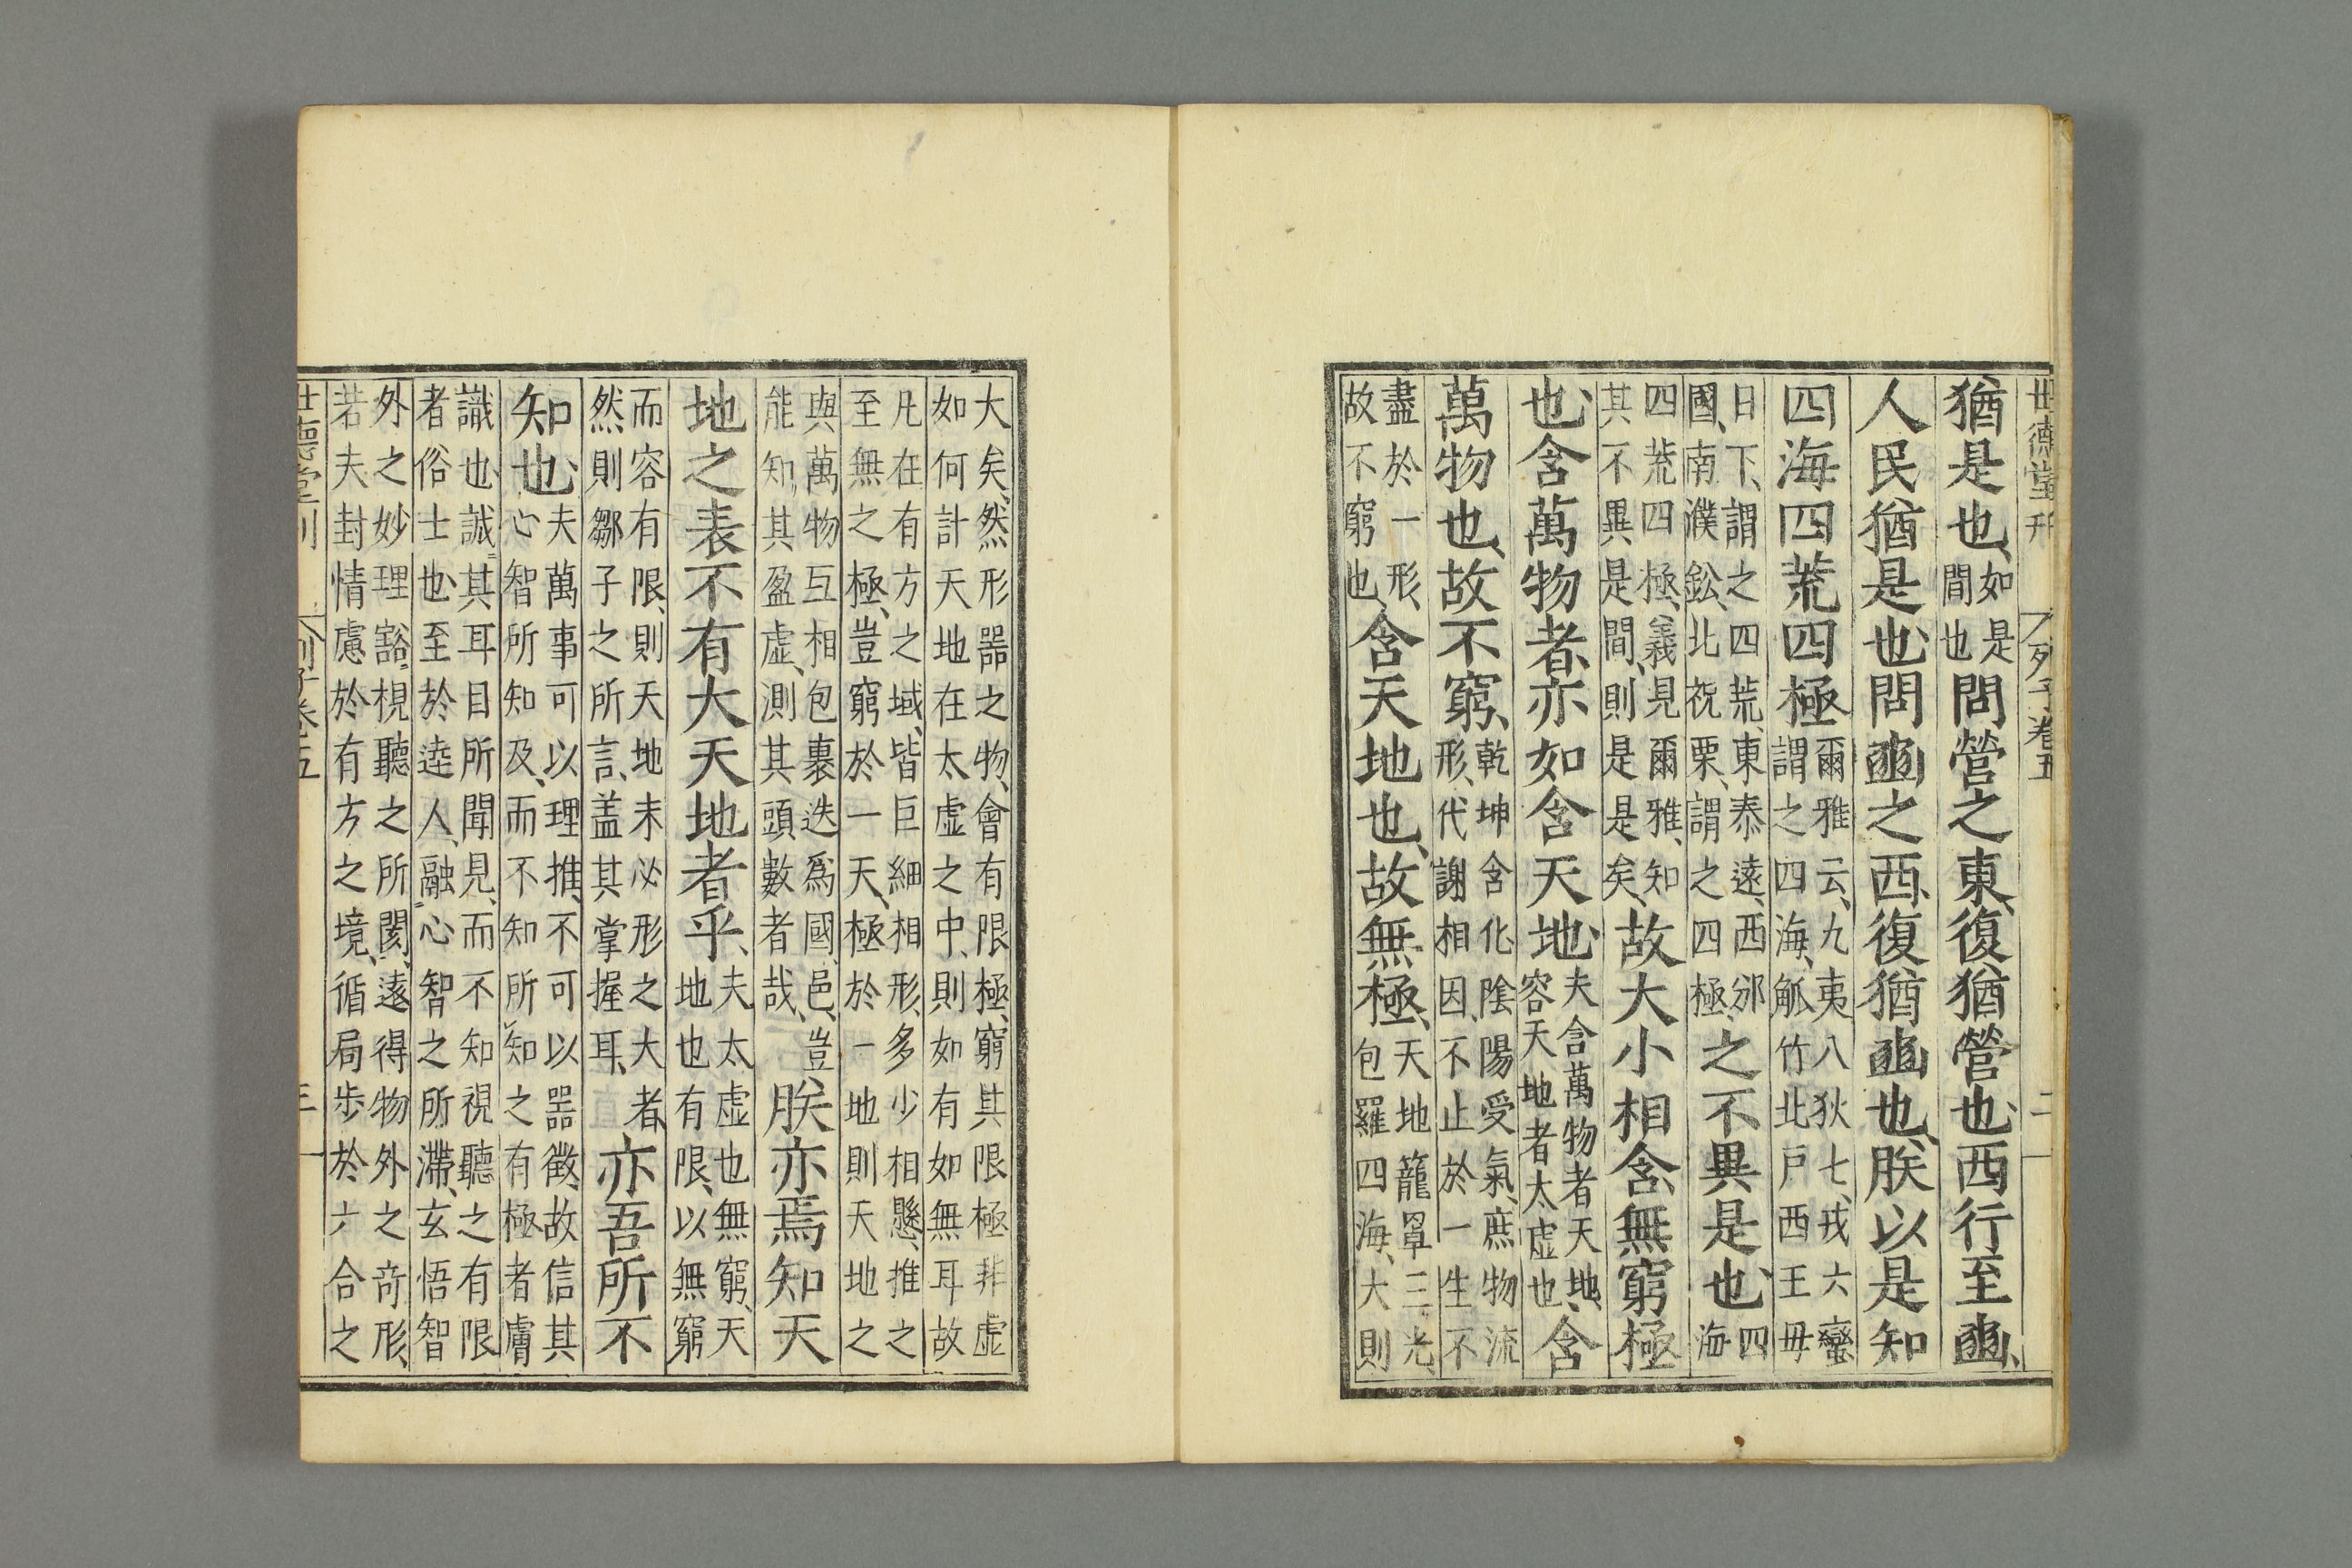 世德堂刊 列子卷五 二
猶是也、如是間也問營之東、復猶營也、西行至豳、
人民猶是也、問豳之西、復猶豳也、朕以是知
四海四荒四極爾雅云、九夷八狄七戎六蠻謂之四海、觚竹北戶西王毋
日下、謂之四荒、東泰遠、西邠國、南濮鈆、北祝栗、謂之四極、之不異是也、四海
四荒四極、義見爾雅、知其不異是間、則是是矣、故大小相含、無窮極
也、含萬物者、亦如含天地、夫含萬物者天地、容天地者太虛也、含
萬物也、故不窮、乾坤含化陰陽受氣、庶物流形、代謝相因、不止於一生不
盡於一形、故不窮也、含天地也、故無極、天地籠罩三光、包羅四海、大則
大矣、然形器之物、會有限極、窮其限極非虛如何計天地在太虛之中、則如有如無耳故
凡在有方之域、皆巨細相形、多少相懸、推之至無之極、豈窮於一天、極於一地則天地之
與萬物互相包裹迭爲國邑、豈能知其盈虛、測其頭數者哉、朕亦焉知天
地之表不有大天地者乎、夫太虛也無窮、天地也有限、以無窮
而容有限、則天地未必形之大者、然則鄒子之所言、盖其掌握耳、亦吾所不
知也、夫萬事可以理推、不可以器徵、故信其心智所知及、而不知所知之有極者膚
識也、誠其耳目所聞見、而不知視聽之有限者俗士也、至於達人、融心智之所滯、玄悟智
外之妙理、豁視聽之所閡、遠得物外之奇形、若夫封情慮於有方之境、循局步於六合之
世德堂刊 列子卷五 三